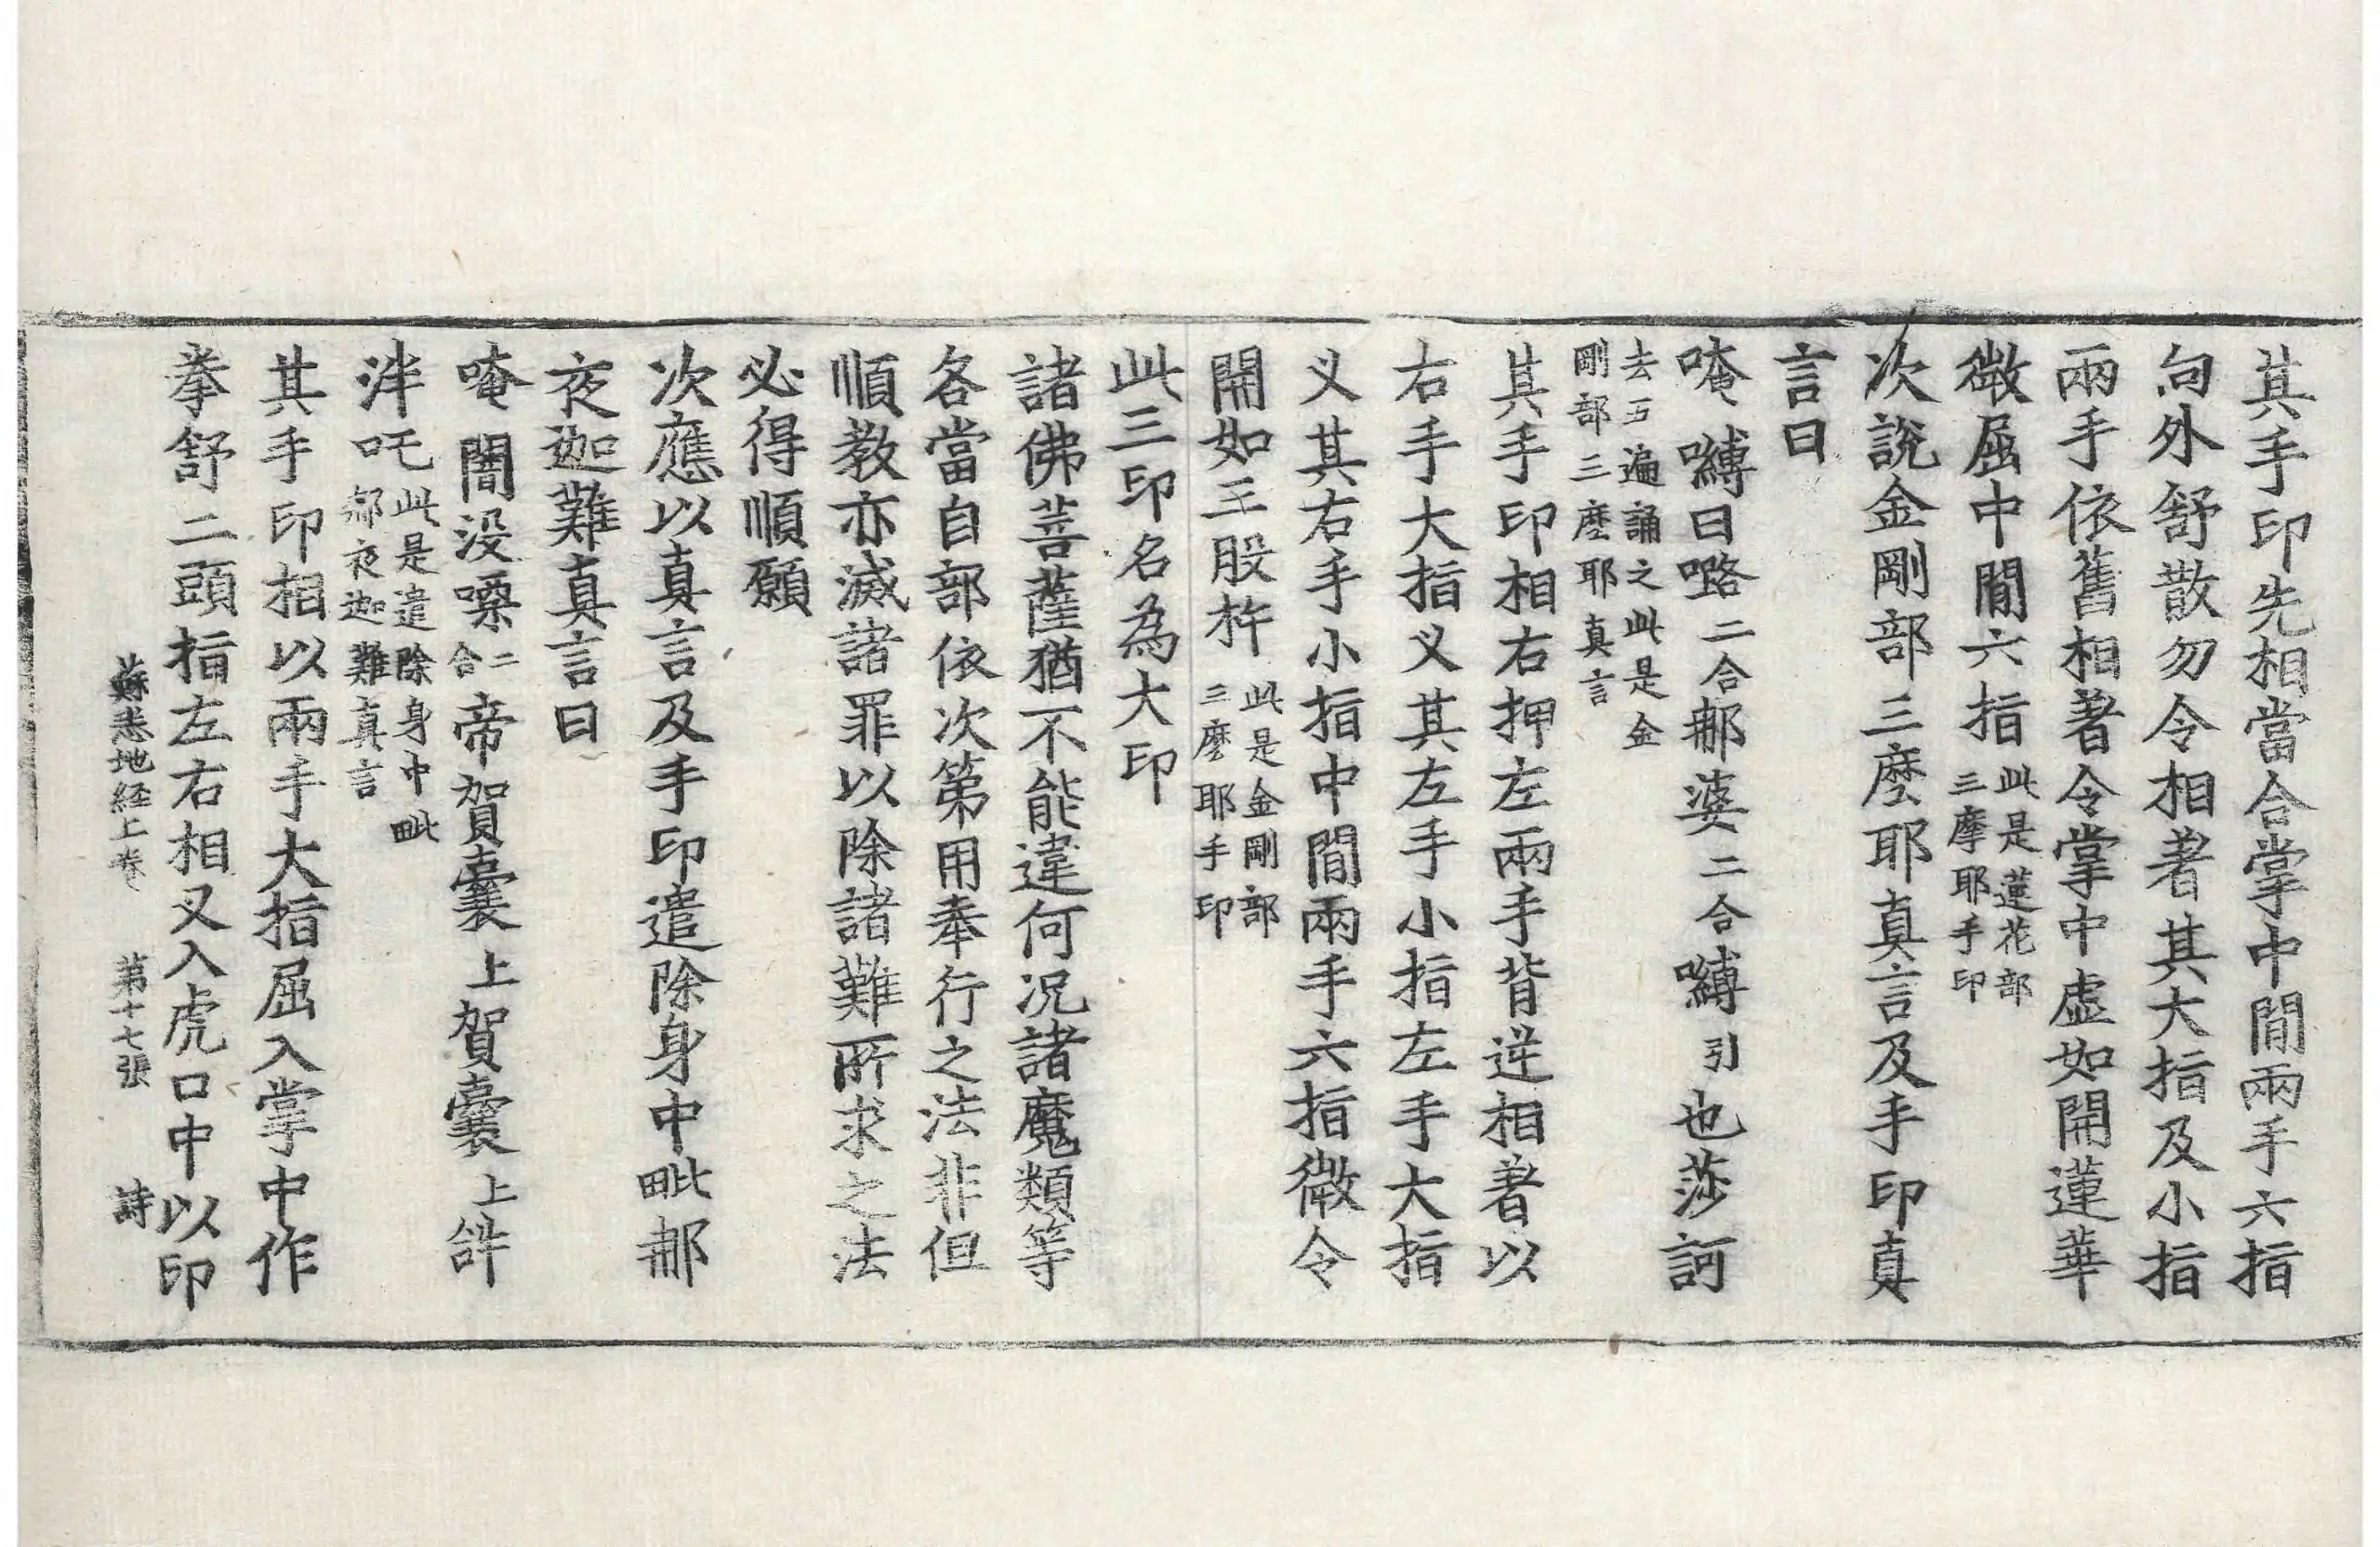 其手印先相當合掌中間兩手六指
向外舒散勿令相著其大指及小指
兩手依舊相著令掌中虛如開蓮華
微屈中間六指此是蓮花部
三摩耶手印
次說金剛部三麼耶真言及手印真
言曰
唵嚩曰㗚二合郝婆二合嚩引也莎訶
去五遍誦之此是金
剛部三麼耶真言
其手印相右押左兩手背逆相著以
右手大指义其左手小指左手大指
义其右手小指中間兩手六指微令
開如三股杵此是金剛部
三麼耶手印
此三印名為大印
諸佛菩薩猶不能違何況諸魔類等
各當自部依次第用奉行之法非但
順教亦滅諸罪以除諸難所求之法
必得順願
次應以真言及手印遣除身中毗郝
夜迦難真言曰
唵闇没㗚二合帝賀曩上賀曩上𤙖
泮吒此是遣除身中毗
郝夜迦難真言
其手印相以兩手大指屈入掌中作
拳舒二頭指左右相叉入虎口中以印
蘇悉地経上卷 第十七張 詩